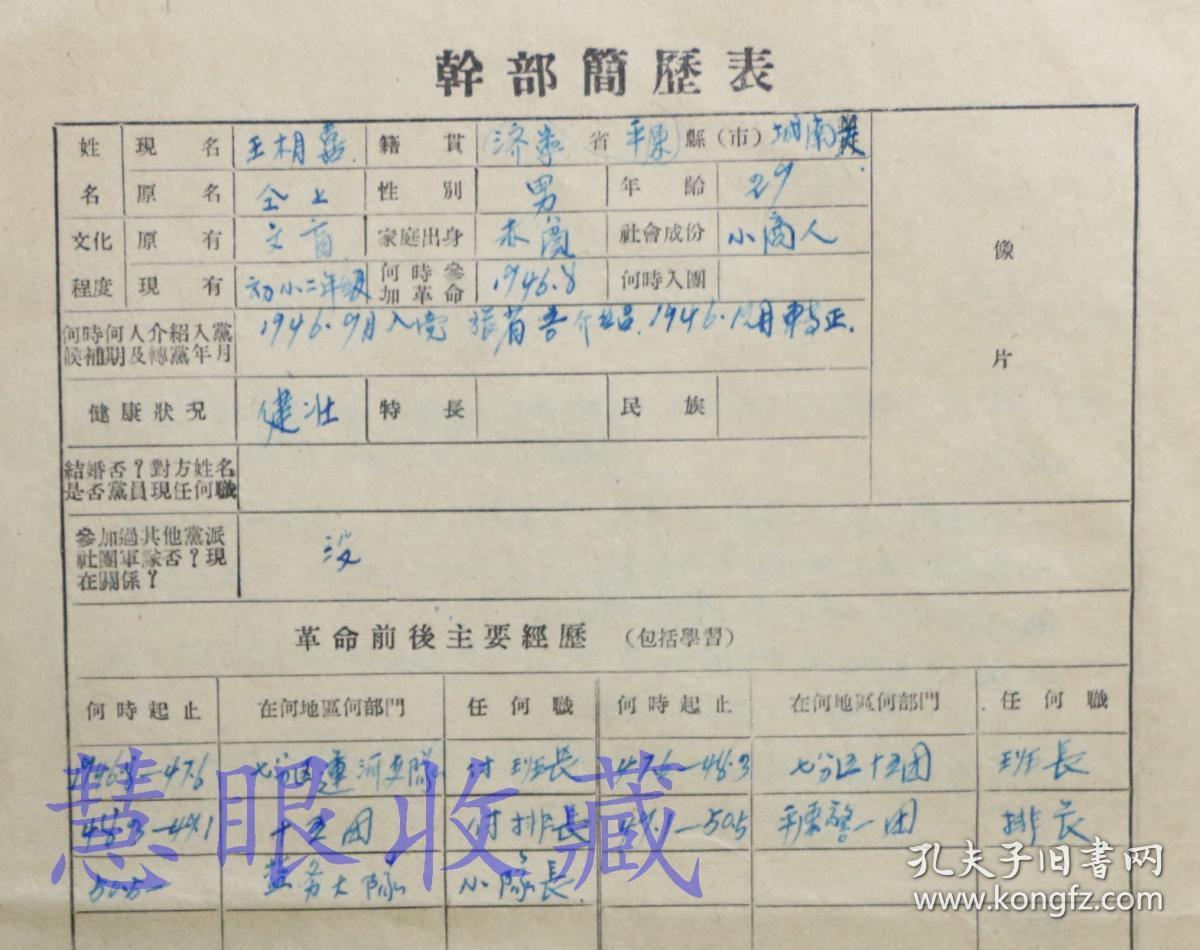 幹部簡歷表
姓 現名 王相 籍貫 济 省 平原 縣（市） 城南
名 原名 仝上 性別 男 年齡 29
文化 原有 文盲 家庭出身 赤貧 社會成份 小商人
程度 現有 初小二年級 何時參加革命 1946.8 何時入團
何時何人介紹入黨 1946.9月入党 張 介紹.1946.12月轉正.
候補期及轉黨年月
健康狀況 健壮 特長 民族
結婚否？對方姓名
是否黨員現任何職
參加過其他黨派
社團軍隊否？現 没
在關係？
像
片
革命前後主要經歷 （包括學習）
何時起止 在何地區何部門 任何職 何時起止 在何地區何部門 任何職
47.6 七分区運河支隊 付班長 47.6—48.3 七分区十五团 班長
十五团 付排長 —50.5 平原警一团 排長
50.5— 大隊 小隊長
慧眼收藏
孔夫子旧书网
www.kongfz.com